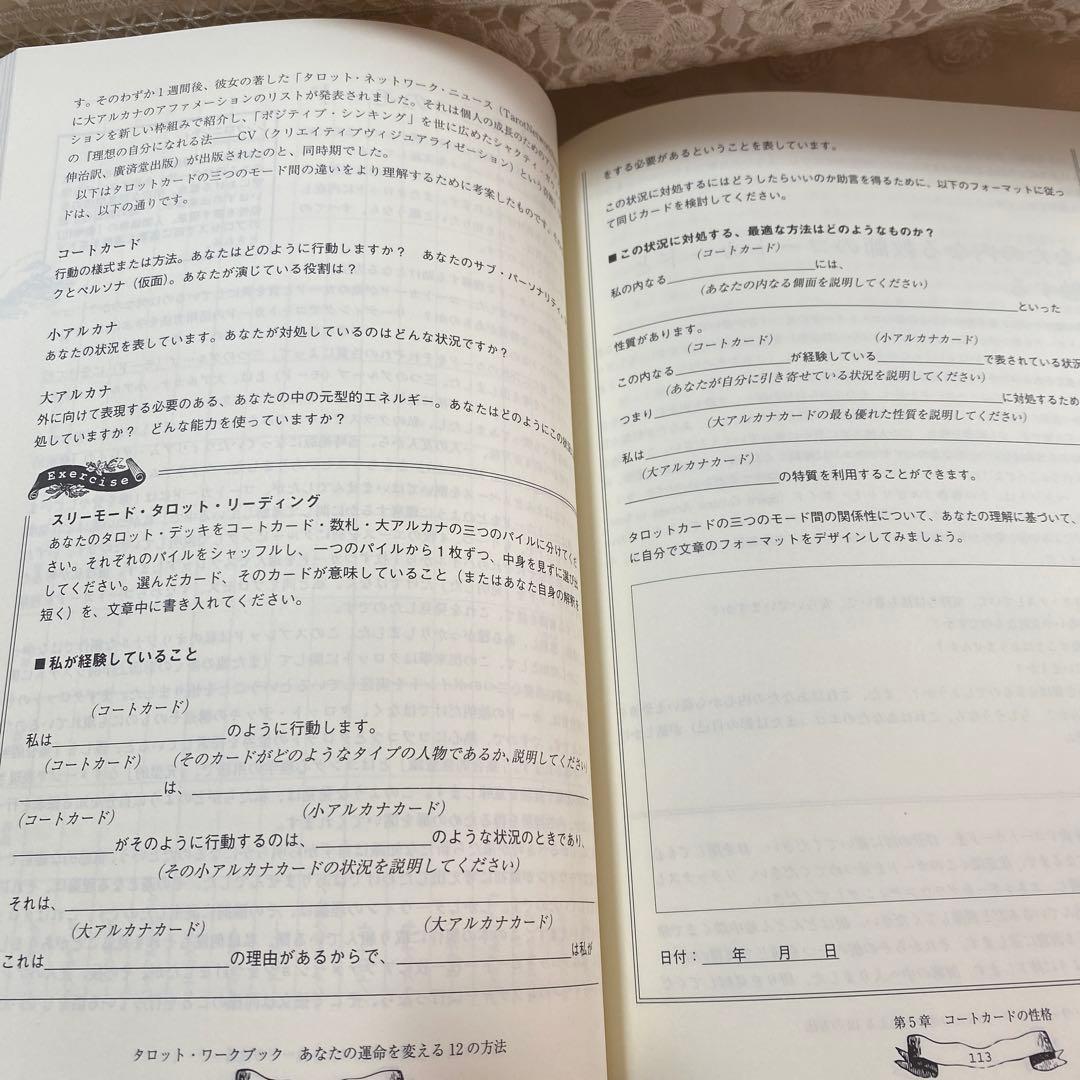 す。そのわずか1週間後、彼女の著した「タロット・ネットワーク・ニュース(TarotNetwo
に大アルカナのアファメーションのリストが発表されました。それは個人の成長のための
ションを新しい枠組みで紹介し、「ポジティブ・シンキング」を世に広めたシャクティ・
の「理想の自分になれる法――CV(クリエイティブヴィジュアライゼーション)という
伸治訳、廣済堂出版)が出版されたのと、同時期でした。
以下はタロットカードの三つのモード間の違いをより理解するために考案したものです。
ドは、以下の通りです。
コートカード
行動の様式または方法。あなたはどのように行動しますか? あなたのサブ・パーソナリティ
クとペルソナ(仮面)。あなたが演じている役割は?
小アルカナ
あなたの状況を表しています。あなたが対処しているのはどんな状況ですか?
大アルカナ
外に向けて表現する必要のある、あなたの中の元型的エネルギー。あなたはどのようにこの状況
処していますか? どんな能力を使っていますか?
Exercise
スリーモード・タロット・リーディング
あなたのタロット・デッキをコートカード・数札・大アルカナの三つのパイルに分けてくだ
さい。それぞれのパイルをシャッフルし、一つのパイルから1枚ずつ、中身を見ずに選び出
してください。選んだカード、そのカードが意味していること(またはあなた自身の解釈を
短く)を、文章中に書き入れてください。
■私が経験していること
(コートカード)
私は____のように行動します。
(コートカード) (そのカードがどのようなタイプの人物であるか、説明してください)
____は、____
(コートカード) (小アルカナカード)
____がそのように行動するのは、____のような状況のときであり、
(その小アルカナカードの状況を説明してください)
それは、____
(大アルカナカード) (大アルカナカード)
これは____の理由があるからで、____は私が
タロット・ワークブック あなたの運命を変える12の方法
をする必要があるということを表しています。
この状況に対処するにはどうしたらいいのか助言を得るために、以下のフォーマットに従っ
て同じカードを検討してください。
■この状況に対処する、最適な方法はどのようなものか?
(コートカード)
私の内なる____には、
(あなたの内なる側面を説明してください)
____といった
性質があります。
(コートカード) (小アルカナカード)
この内なる____が経験している____で表されている状況
(あなたが自分に引き寄せている状況を説明してください)
つまり____に対処するため
(大アルカナカードの最も優れた性質を説明してください)
私は____
(大アルカナカード)
____の特質を利用することができます。
タロットカードの三つのモード間の関係性について、あなたの理解に基づいて、
に自分で文章のフォーマットをデザインしてみましょう。
日付:____年____月____日
第5章 コートカードの性格
113